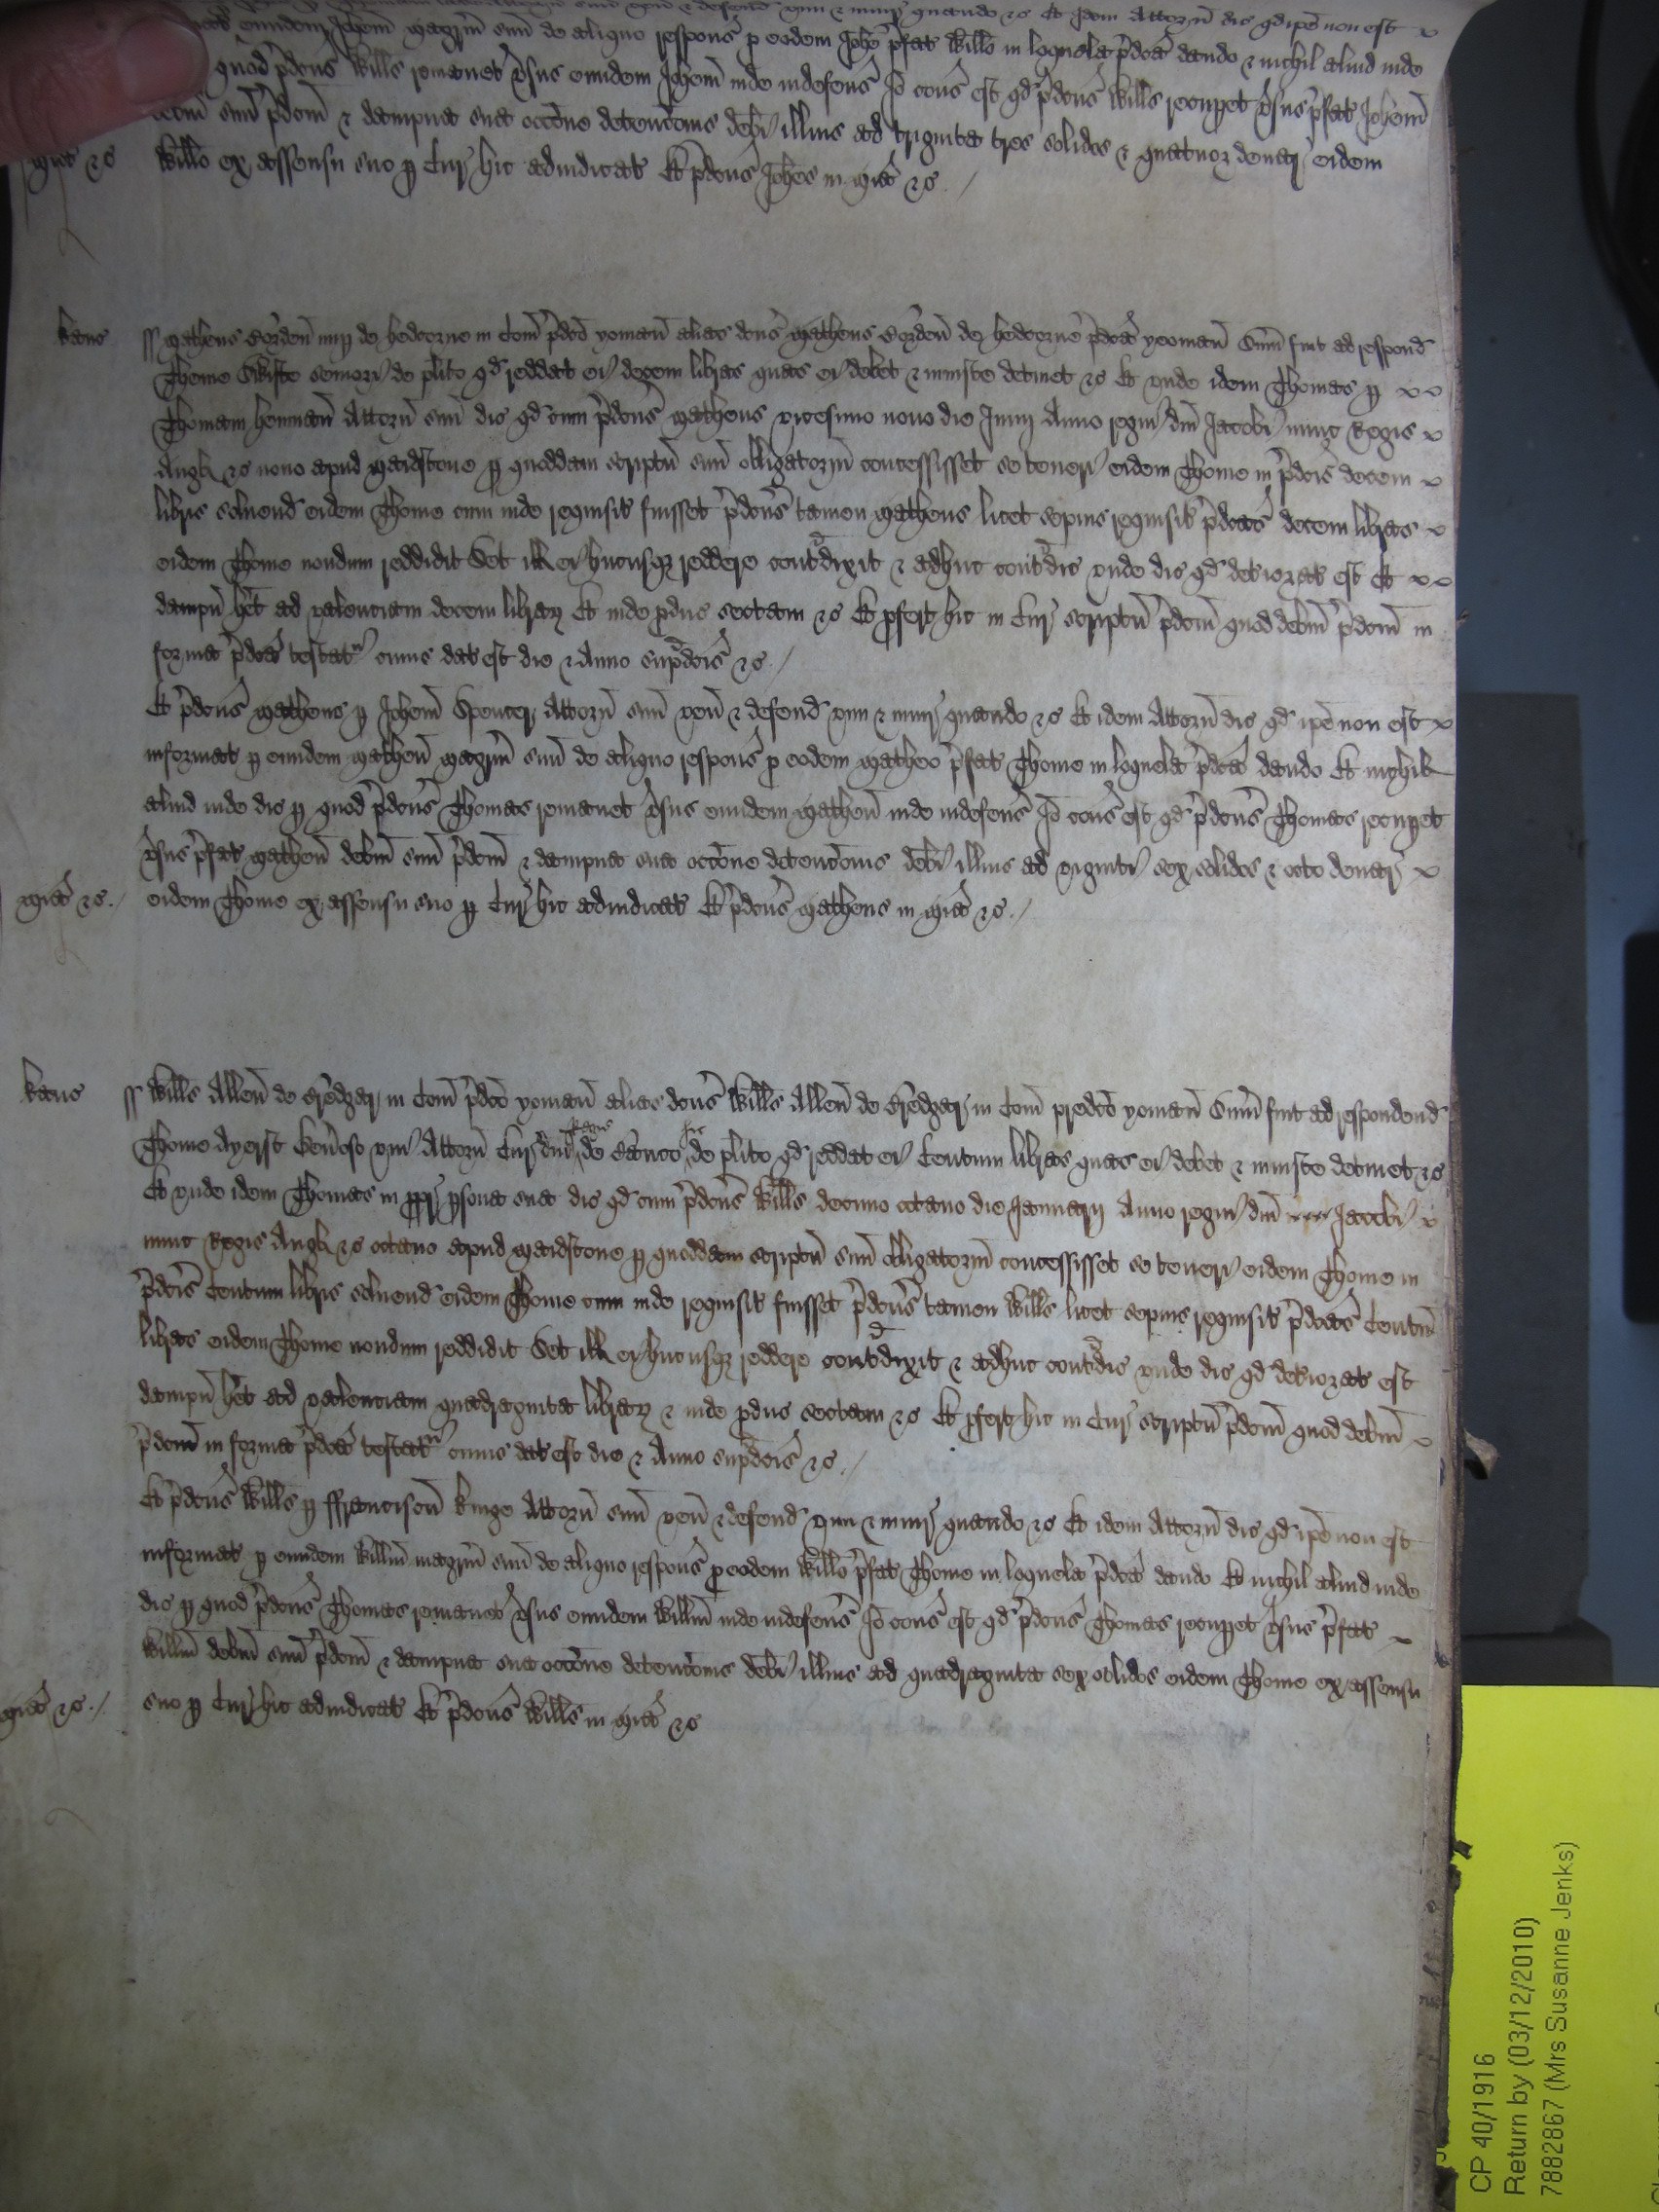 eundem Johem magrm suu de aliquo respons p eodem Johe pfat Willo in loquela pdca dando & nichil aliud inde
quod pdcus Wills remanet vsus eundem Johem inde indefens Io cons est qd pdcus Wills recupet vsus pfat Johem
suu pdcm & dampna sua occone detencois debi illius ad triginta tres solidos & quatuor denar eidem
mia &c Willo ex assensu suo p Cur hic adiudicat Et pdcus Johes in mia &c
Kanc ss Matheus nup de Hedcorne in Com pdco yoman alias dcus Matheus de Hedcorne pdca yeoman Sum fuit ad respond
Thome Swifte seniori de plito qd reddat ei decem libras quas ei debet & iniuste detinet &c Et unde idem Thomas p
Thomam Henman Attorn suu dic qd cum pdcus Matheus vicesimo nono die Junij Anno regni dni Jacobi nunc Regis
Angl &c nono apud Maidstone p quoddam scriptu suu obligatoriu concessisset se teneri eidem Thome in pdcis decem
libris solvend eidem Thome cum inde requisit fuisset pdcus tamen Matheus licet sepius requisit pdcas decem libras
eidem Thome nondum reddidit Set ill ei hucusq reddere contradixit & adhuc contradic unde dic qd deteriorat est Et
dampn het ad valenciam decem librar Et inde pduc sectam &c Et pfert hic in Cur scriptu pdcm quod debm pdcm in
forma pdca testatr cuius dat est die & Anno supdcis &c
Et pdcus Matheus p Johem Spencer Attorn suu ven & defend vim & iniur quando &c Et idem Attorn dic qd ipe non est
informat p eundem Matheu magrm suu de aliquo respons p eodem Matheo pfat Thome in loquela pdca dando Et nichil
aliud inde dic p quod pdcus Thomas remanet vsus eundem Matheu inde indefens Io cons est qd pdcus Thomas recupet
vsus pfat Matheu debm suu pdcm & dampna sua occone detencois debi illius ad viginti sex solidos & octo denar
mia &c eidem Thome ex assensu suo p Cur hic adiudicat Et pdcus Matheus in mia &c
Kanc ss Wills Allen de Bredgar in Com pdco yoman alias dcus Wills Allen de Bredgar in Com predco yoman Sum fuit ad respondend
Thome Ayerst Gen uni Attorn Cur dni Regis de Banco hic de plito qd reddat ei Centum libras quas ei debet & iniuste detinet &c
Et unde idem Thomas in ppr psona sua dic qd cum pdcus Wills decimo octavo die Januarij Anno regni dni Jacobi
nunc Regis Angl &c octavo apud Maidstone p quoddam scriptu suu obligatoriu concessisset se teneri eidem Thome in
pdcis Centum libris solvend eidem Thome cum inde requisit fuisset pdcus tamen Wills licet sepius requisit pdcas Centu
libras eidem Thome nondum reddidit Set ill ei hucusq reddere contradixit & adhuc contradic unde dic qd deteriorat est
dampn het ad valenciam quadraginta librar & inde pduc sectam &c Et pfert hic in Cur scriptu pdcm quod debm
pdcm in forma pdca testatr cuius dat est die & Anno supdcis &c
Et pdcus Wills p ffranciscu Kinge Attorn suu ven & defend vim & iniur quando &c Et idem Attorn dic qd ipe non est
informat p eundem Willm magrm suu de aliquo respons p eodem Willo pfat Thome in loquela pdca dando Et nichil aliud inde
dic p quod pdcus Thomas remanet vsus eundem Willm inde indefens Io cons est qd pdcus Thomas recupet vsus pfat
Willm debm suu pdcm & dampna sua occone detencois debi illius ad quadraginta sex solidos eidem Thome ex assensu
mia &c suo p Cur hic adiudicat Et pdcus Wills in mia &c
CP 40/1916
Return by (03/12/2010)
7882867 (Mrs Susanne Jenks)